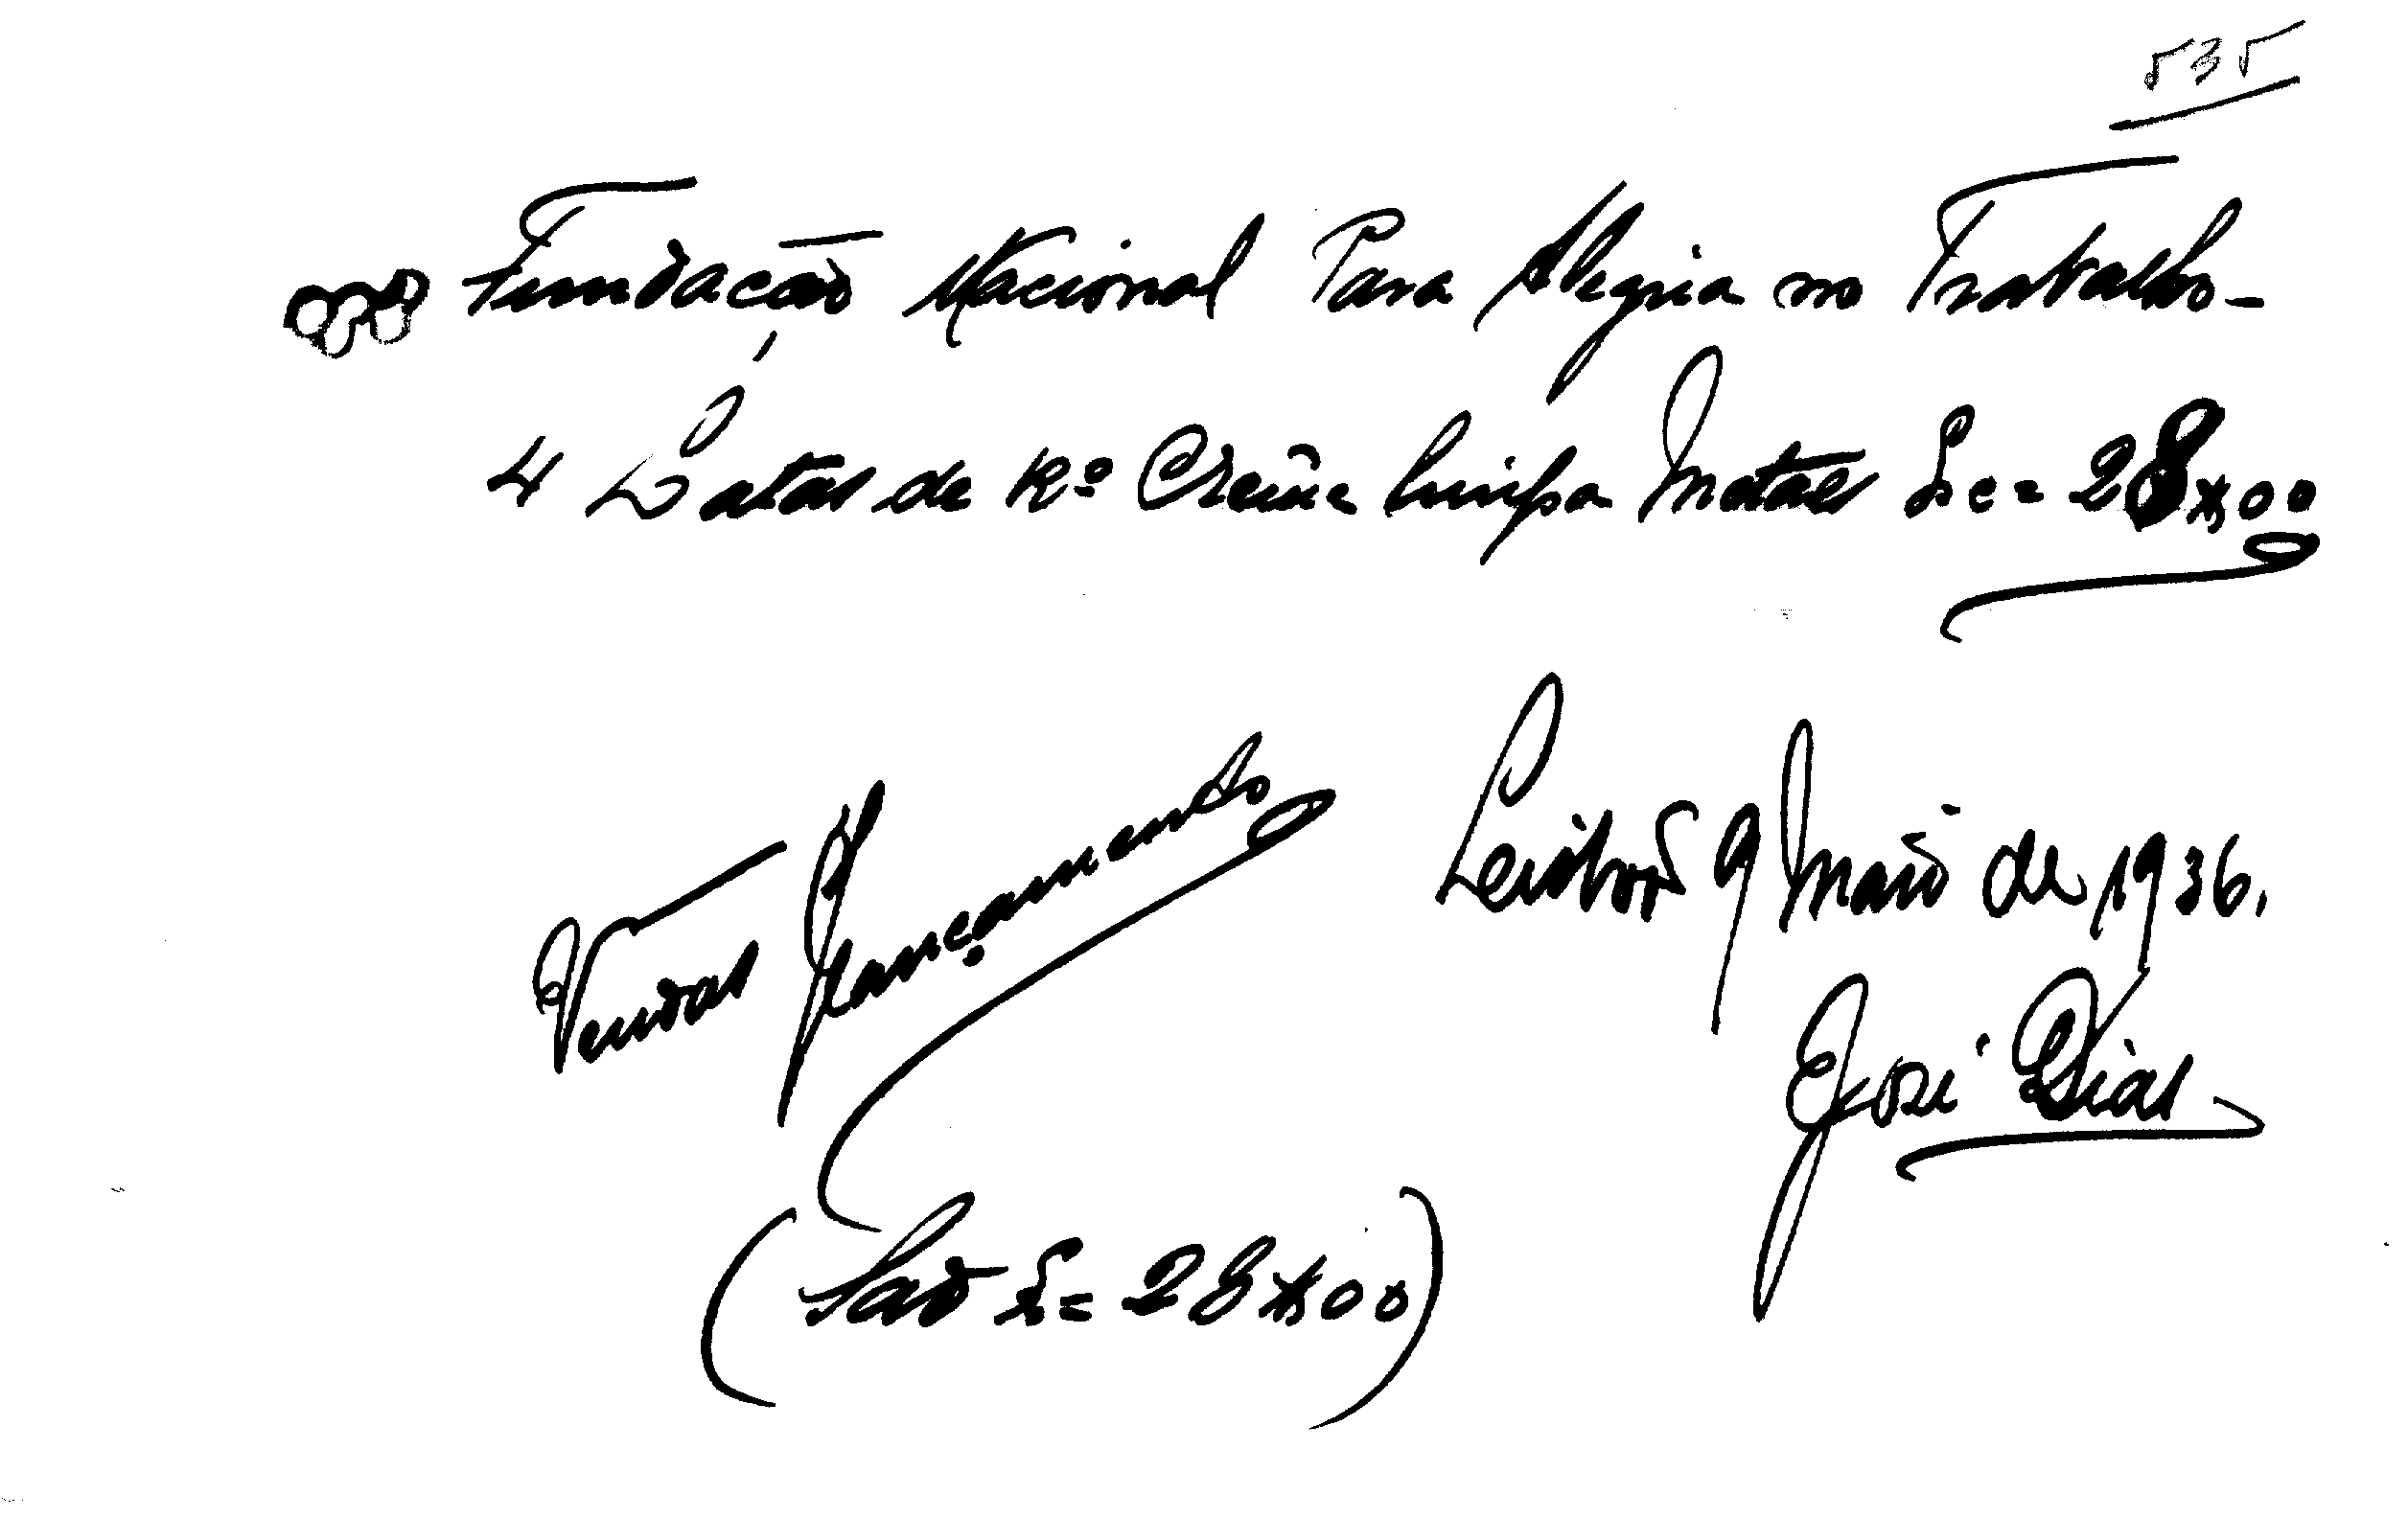 535
Fundação Nacional Para Alegria no Trabalho-
4 Latas de Kº Creme limpa Metaes Esc= 28$00
Leisboa 9 Maio de 1936.
José Dias
(São E= 28$00)